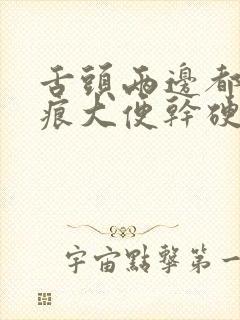 舌頭兩邊都
痕犬便幹硬
宇宙點擊第一